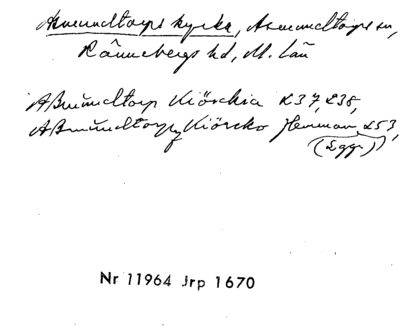 Asmundtorps kyrka, Asmundtorps sn,
Rönnebergs hd, M. län
Aßmŭndtorp Kiörckia 237, 238,
Aßmŭndtorpz Kiörcko Herman 253,
(Lgg)
Nr 11964 Jrp 1670